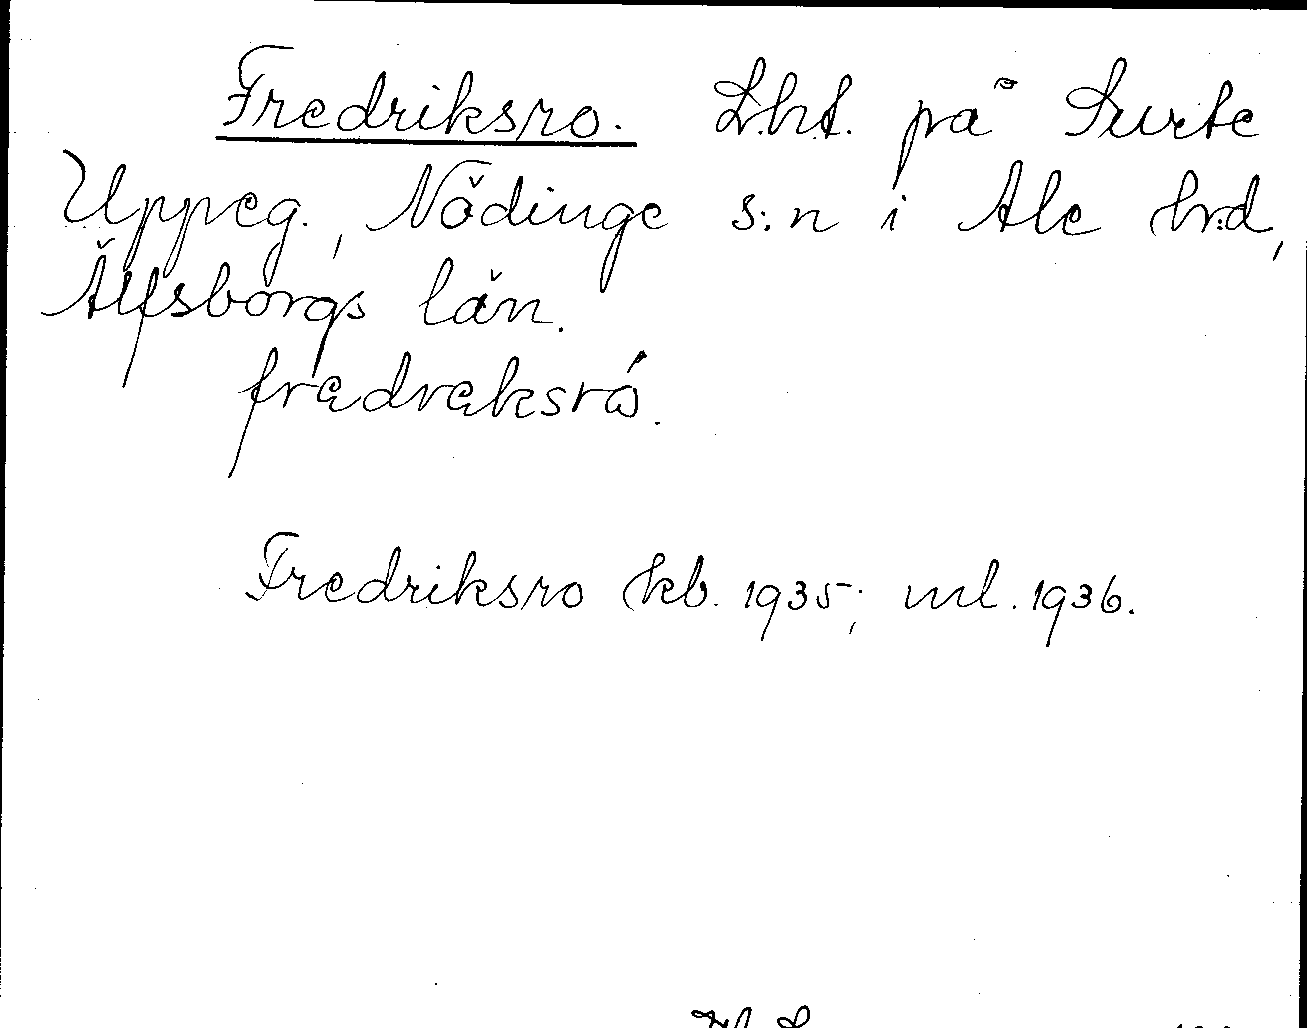 Fredriksro. Lht. på Surte
Uppeg., Nödinge s:n i Ale hrd,
Älfsborgs län.
Fredriksro kb. 1935; ml. 1936.